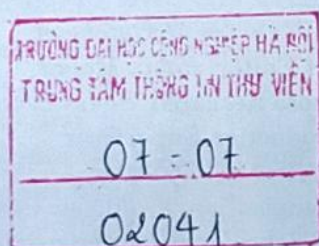 TRƯỜNG ĐẠI HỌC CÔNG NGHIỆP HÀ NỘI
TRUNG TÂM THÔNG TIN THƯ VIỆN
07 - 07
02041